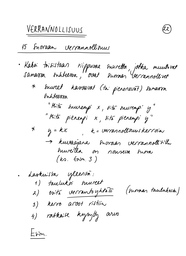 VERRANNOLLISUUS
22
1§ Suoraan verrannollisuus
• Kaksi toisistaan riippuvaa suuretta, jotka muuttuvat
samassa suhteessa, ovat suoraan verrannolliset
* suureet kasvavat (tai pienenevät) samassa
suhteessa
"Mitä suurempi x, sitä suurempi y"
"Mitä pienempi x, sitä pienempi y"
* y = kx , k = verrannollisuuskerroin
→ kuvaajana suoraan verrannollisilla
suureilla on nouseva suora
(ks. kuva 3.)
• Laskuissa yleensä:
1) taulukoi suureet
2) verrantoyhtälö (suoraan taulukosta)
3) kerro arvot ristiin
4) ratkaise kysytty arvo
Esim